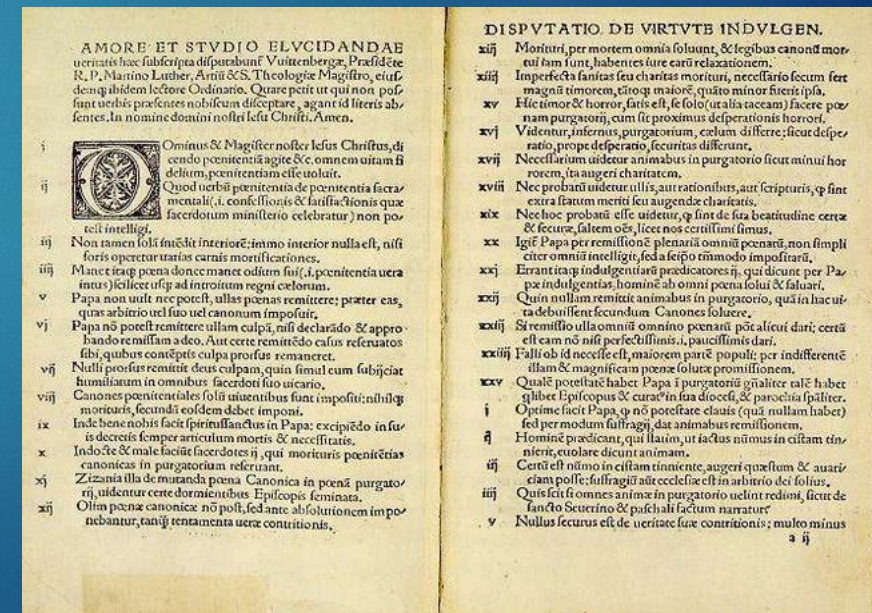 AMORE ET STVDIO ELVCIDANDAE
ueritatis hæc subscripta disputabunť Vuittenbergæ, Præsidēte
R. P. Martino Luther, Artiū & S. Theologiæ Magistro, eius-
demq; ibidem lectore Ordinario. Quare petit ut qui non pos-
sunt uerbis præsentes nobiscum disceptare, agant id literis ab-
sentes. In nomine domini nostri Iesu Christi. Amen.
i DOminus & Magister noster Iesus Christus, di
cendo pœnitentiā agite &c. omnem uitam fi
delium, pœnitentiam esse uoluit.
ij Quod uerbū pœnitentia de pœnitentia sacra-
mentali (.i. confessionis & satisfactionis quæ
sacerdotum ministerio celebratur) non po-
test intelligi.
iij Non tamen solā intēdit interiorē: immo interior nulla est, nisi
foris operetur uarias carnis mortificationes.
iiij Manet itaq; pœna donec manet odium sui (.i. pœnitentia uera
intus) scilicet usq; ad introitum regni cælorum.
v Papa non uult nec potest, ullas pœnas remittere: præter eas,
quas arbitrio uel suo uel canonum imposuit.
vj Papa nō potest remittere ullam culpā, nisi declarādo & appro-
bando remissam a deo. Aut certe remittēdo casus reseruatos
sibi, quibus contēptis culpa prorsus remaneret.
vij Nulli prorsus remittit deus culpam, quin simul eum subijciat
humiliatum in omnibus sacerdoti suo uicario.
viij Canones pœnitentiales solū uiuentibus sunt impositi: nihilq;
morituris, secundū eosdem debet imponi.
ix Inde bene nobis facit spiritussanctus in Papa: excipiēdo in su-
is decretis semper articulum mortis & necessitatis.
x Indocte & male faciūt sacerdotes ij, qui morituris pœnitētias
canonicas in purgatorium reseruant.
xj Zizania illa de mutanda pœna Canonica in pœnā purgato-
rij, uidentur certe dormientibus Episcopis seminata.
xij Olim pœnæ canonicæ nō post, sed ante absolutionem impo-
nebantur, tanq̄ tentamenta ueræ contritionis.
DISPVTATIO DE VIRTVTE INDVLGEN.
xiij Morituri, per mortem omnia soluunt, & legibus canonū mor-
tui iam sunt, habentes iure earū relaxationem.
xiiij Imperfecta sanitas seu charitas morituri, necessario secum fert
magnū timorem, tātoq; maiorē, quāto minor fuerit ipsa.
xv Hic timor & horror, satis est, se solo (ut alia taceam) facere pœ-
nam purgatorij, cum sit proximus desperationis horrori.
xvj Videntur, infernus, purgatorium, cælum differre: sicut despe-
ratio, prope desperatio, securitas differunt.
xvij Necessarium uidetur animabus in purgatorio sicut minui hor
rorem, ita augeri charitatem.
xviij Nec probatū uidetur ullis, aut rationibus, aut scripturis, ꝙ sint
extra statum meriti seu augendæ charitatis.
xix Nec hoc probatū esse uidetur, ꝙ sint de sua beatitudine certæ
& securæ, saltem oēs, licet nos certissimi simus.
xx Igiť Papa per remissionē plenariā omniū pœnarū, non simpli
citer omniū intelligit, sed a seipō tm̄modo impositarū.
xxj Errant itaq; indulgentiarū prædicatores ij, qui dicunt per Pa-
pæ indulgentias, hominē ab omni pœna solui & saluari.
xxij Quin nullam remittit animabus in purgatorio, quā in hac ui-
ta debuissent secundum Canones soluere.
xxiij Si remissio ulla omniū omnino pœnarū pōt alicui dari: certū
est eam nō nisi perfectissimis .i. paucissimis dari.
xxiiij Falli ob id necesse est, maiorem partē populi: per indifferentē
illam & magnificam pœnæ solutæ promissionem.
xxv Qualē potestatē habet Papa ī purgatoriū gn̄aliter talē habet
q̄libet Episcopus & curat⁹ in sua diocesi, & parochia spāliter.
i Optime facit Papa, ꝙ nō potestate clauis (quā nullam habet)
sed per modum suffragij, dat animabus remissionem.
ij Hominē prædicant, qui statim, ut iactus nūmus in cistam tin-
nierit, euolare dicunt animam.
iij Certū est nūmo in cistam tinniente, augeri quæstum & auari-
ciam posse: suffragiū aūt ecclesiæ est in arbitrio dei solius.
iiij Quis scit si omnes animæ in purgatorio uelint redimi, sicut de
sancto Seuerino & paschali factum narratur.
v Nullus securus est de ueritate suæ contritionis: multo minus
a ij